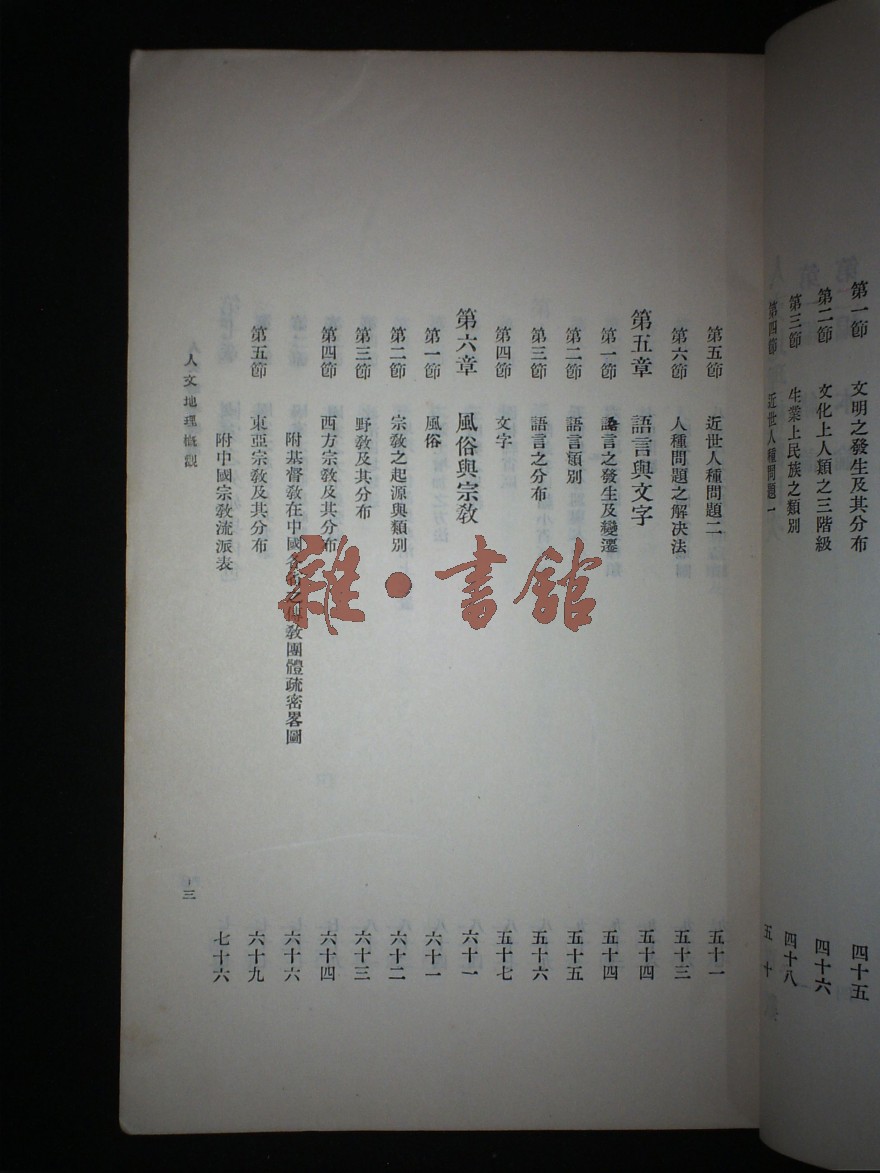 第一節 文明之發生及其分布 四十五
第二節 文化上人類之三階級 四十六
第三節 生業上民族之類別 四十八
第四節 近世人種問題一 五十
第五節 近世人種問題二 五十一
第六節 人種問題之解決法 五十三
第五章 語言與文字 五十四
第一節 語言之發生及變遷 五十四
第二節 語言類別 五十五
第三節 語言之分布 五十六
第四節 文字 五十七
第六章 風俗與宗教 六十一
第一節 風俗 六十一
第二節 宗教之起源與類別 六十二
第三節 野教及其分布 六十三
第四節 西方宗教及其分布 六十四
附基督教在中國各省之傳教團體疏密畧圖 六十六
第五節 東亞宗教及其分布 六十九
附中國宗教流派表 七十六
人文地理概觀 三
雜·書館